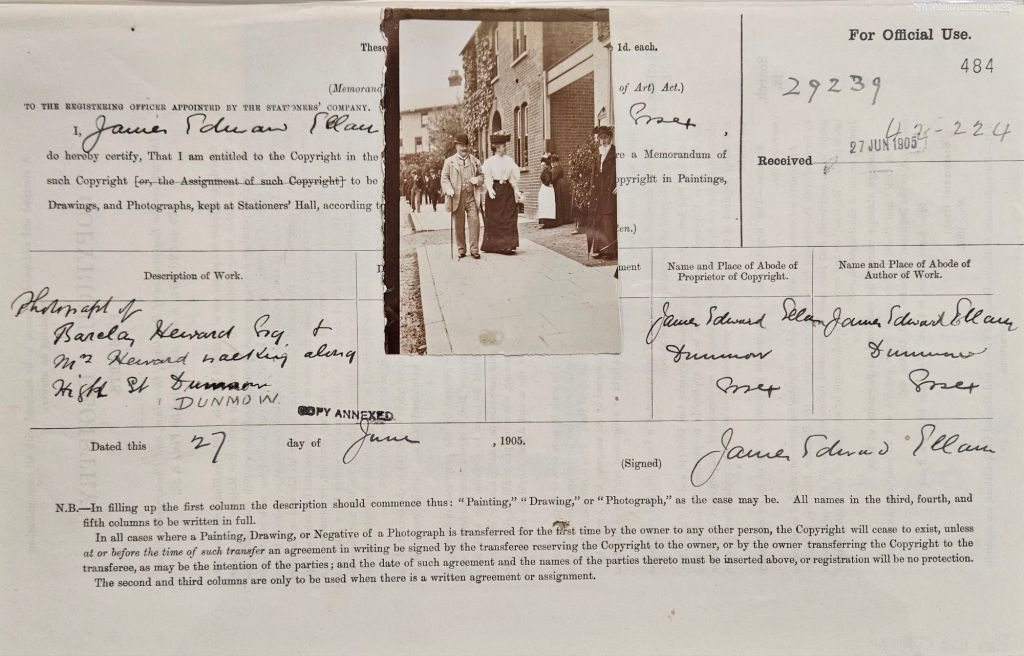 These
1d. each.
For Official Use.
484
(Memorand
of Art) Act.)
29239
TO THE REGISTERING OFFICER APPOINTED BY THE STATIONERS' COMPANY.
I, James Edward Ellam
Essex,
42-224
do hereby certify, That I am entitled to the Copyright in the
re a Memorandum of
Received
27 JUN 1905
such Copyright [or, the Assignment of such Copyright] to be
opyright in Paintings,
Drawings, and Photographs, kept at Stationers' Hall, according t
en.)
Description of Work.
D
ment
Name and Place of Abode of
Proprietor of Copyright.
Name and Place of Abode of
Author of Work.
Photograph of
Barclay Heward Esq. &
Mrs Heward walking along
High St Dunmow
DUNMOW.
James Edward Ellam
Dunmow
Essex
James Edward Ellam
Dunmow
Essex
COPY ANNEXED.
Dated this 27 day of June, 1905.
(Signed) James Edward Ellam
N.B.—In filling up the first column the description should commence thus: "Painting," "Drawing," or "Photograph," as the case may be. All names in the third, fourth, and
fifth columns to be written in full.
In all cases where a Painting, Drawing, or Negative of a Photograph is transferred for the first time by the owner to any other person, the Copyright will cease to exist, unless
at or before the time of such transfer an agreement in writing be signed by the transferee reserving the Copyright to the owner, or by the owner transferring the Copyright to the
transferee, as may be the intention of the parties; and the date of such agreement and the names of the parties thereto must be inserted above, or registration will be no protection.
The second and third columns are only to be used when there is a written agreement or assignment.